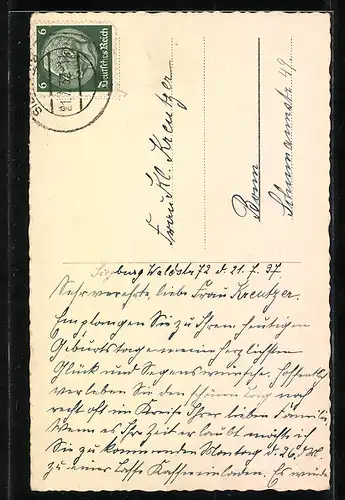 6 Deutsches Reich 6
Frau Kl. Kreutzer
Bonn
Schumannstr. 49
Siegburg Waldstr 72 d. 21. 7. 37
Sehr verehrte, liebe Frau Kreutzer.
Empfangen Sie zu Ihrem heutigen
Geburtstage meine herzlichsten
Glück und Segenswünsche. Hoffentlich
verleben Sie den schönen Tag noch
recht oft im Kreise Ihrer lieben Familie.
Wenn es Ihre Zeit erlaubt möchte ich
Sie zu kommenden Montag d. 26. d. M.
zu einer Tasse Kaffee einladen. Es würde